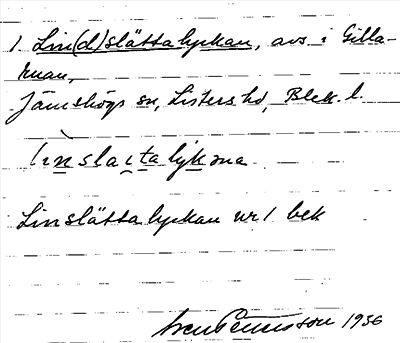 1 Lin(d)slättalyckan, avs. i Gilla-
ruan,
Jämshögs sn, Listers hd, Blek. l.
linslaitalykəna
Linslättalyckan nr 1 bek
Sven Benson 1936